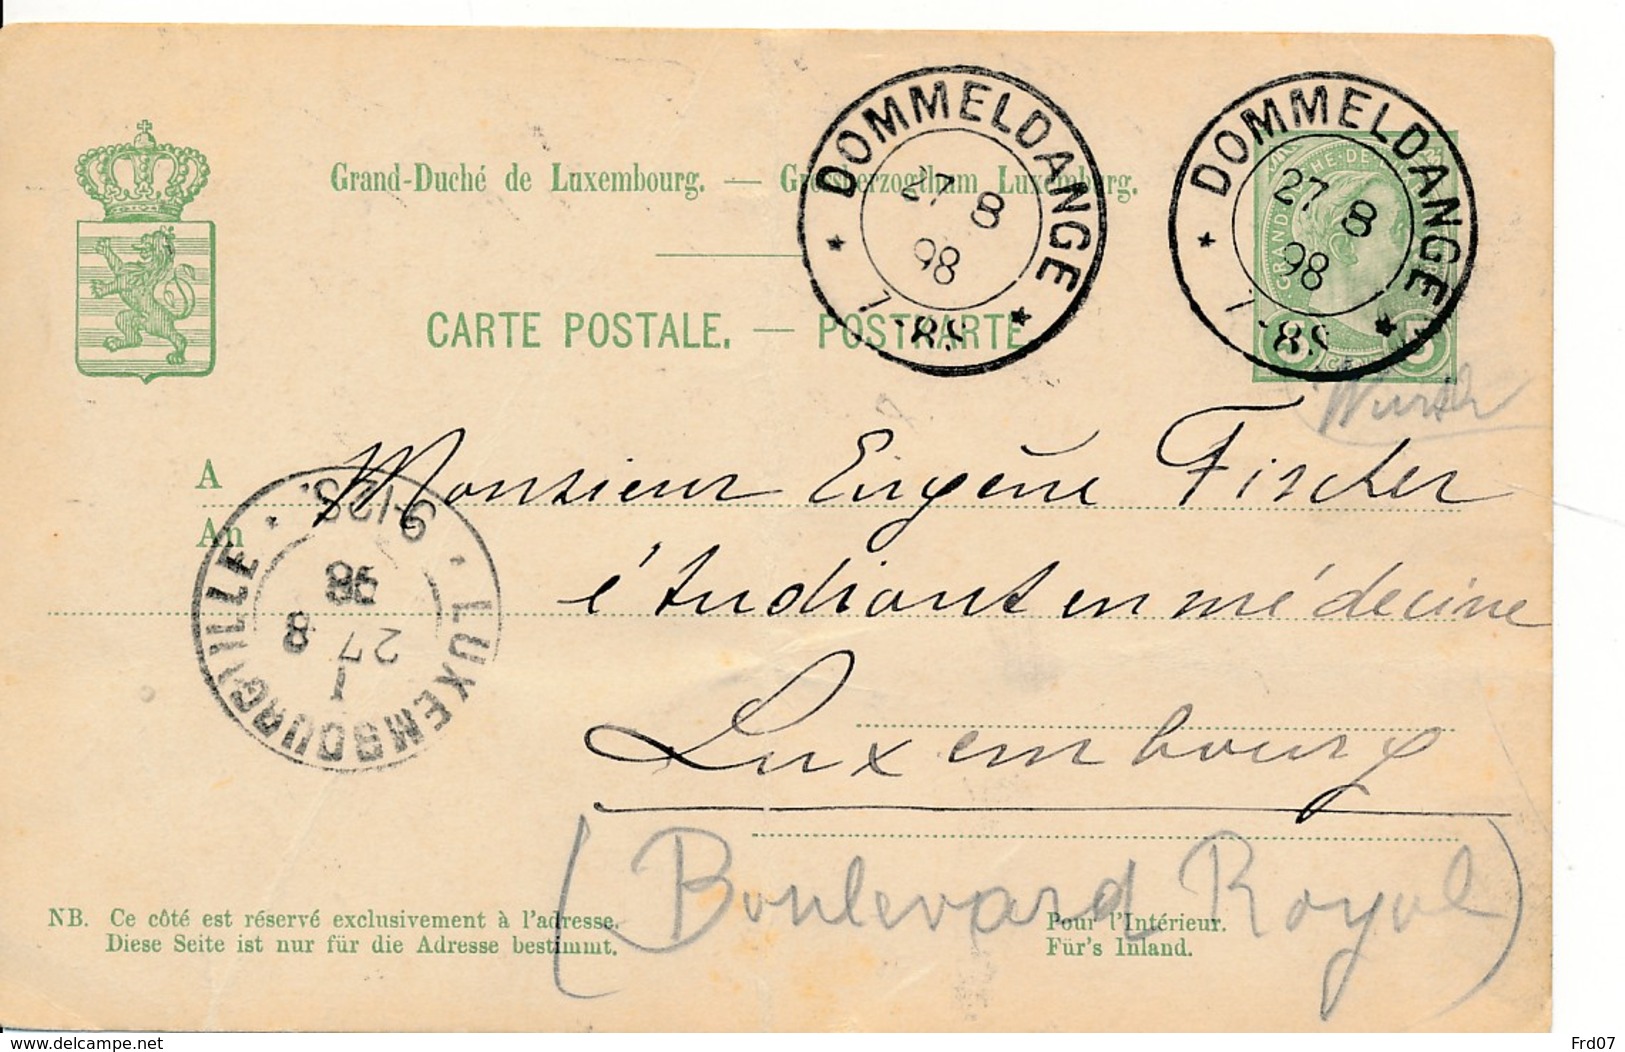 Grand-Duché de Luxembourg. — Großherzogthum Luxemburg.
CARTE POSTALE. — POSTKARTE
DOMMELDANGE
27 8
98
7-8S
DOMMELDANGE
27 8
98
7-8S
5
Wurth
A Monsieur Eugène Fischer
An
étudiant en médecine
Luxembourg
(Boulevard Royal)
LUXEMBOURG-VILLE
9-12S
98
27 8
1
NB. Ce côté est réservé exclusivement à l'adresse.
Diese Seite ist nur für die Adresse bestimmt.
Pour l'Intérieur.
Für's Inland.
delcampe.net
Frd07